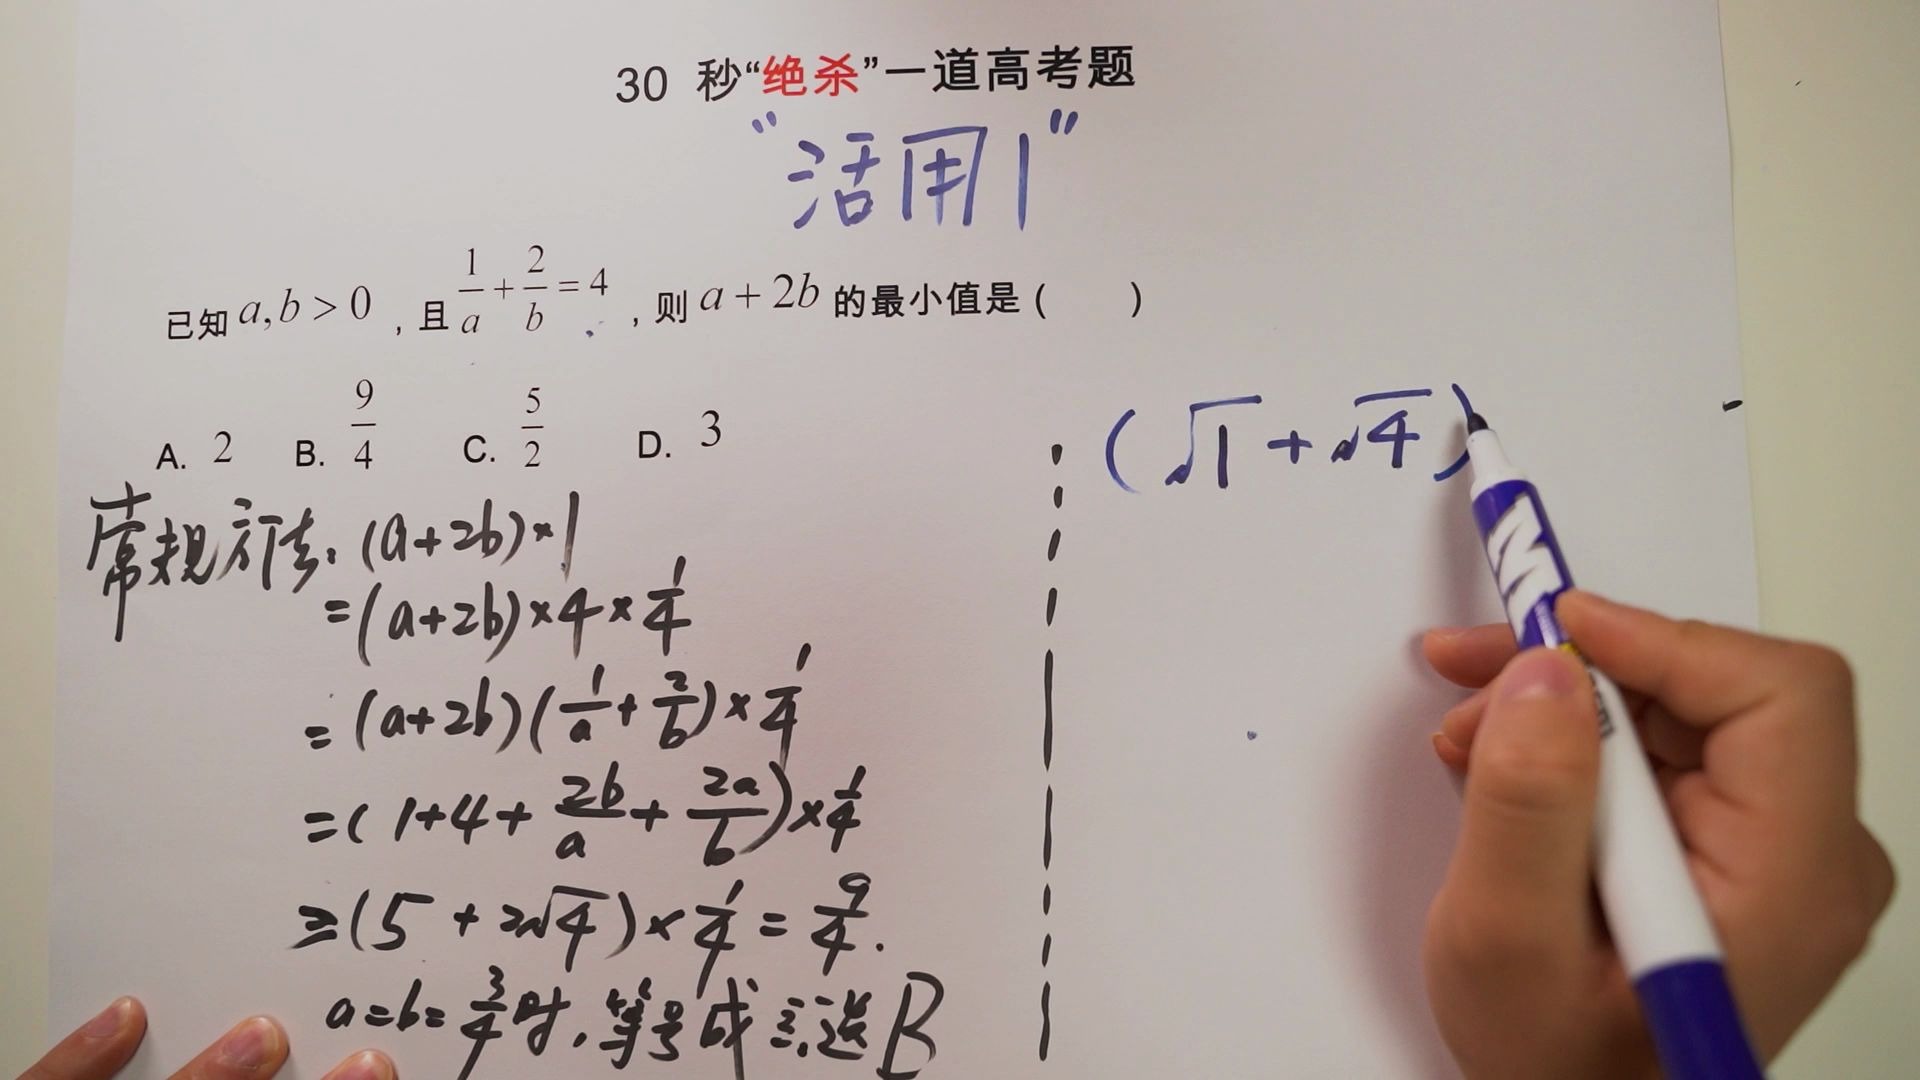 30 秒“绝杀”一道高考题
“活用1”
已知 a,b > 0 ,且 1/a + 2/b = 4 ,则 a + 2b 的最小值是( )
A. 2 B. 9/4 C. 5/2 D. 3
(√1 + √4)
常规方法: (a+2b)×1
=(a+2b)×4×1/4
=(a+2b)(1/a+2/b)×1/4
=(1+4+2b/a+2a/b)×1/4
≥(5+2√4)×1/4=9/4.
a=b=3/4时,等号成立,选B